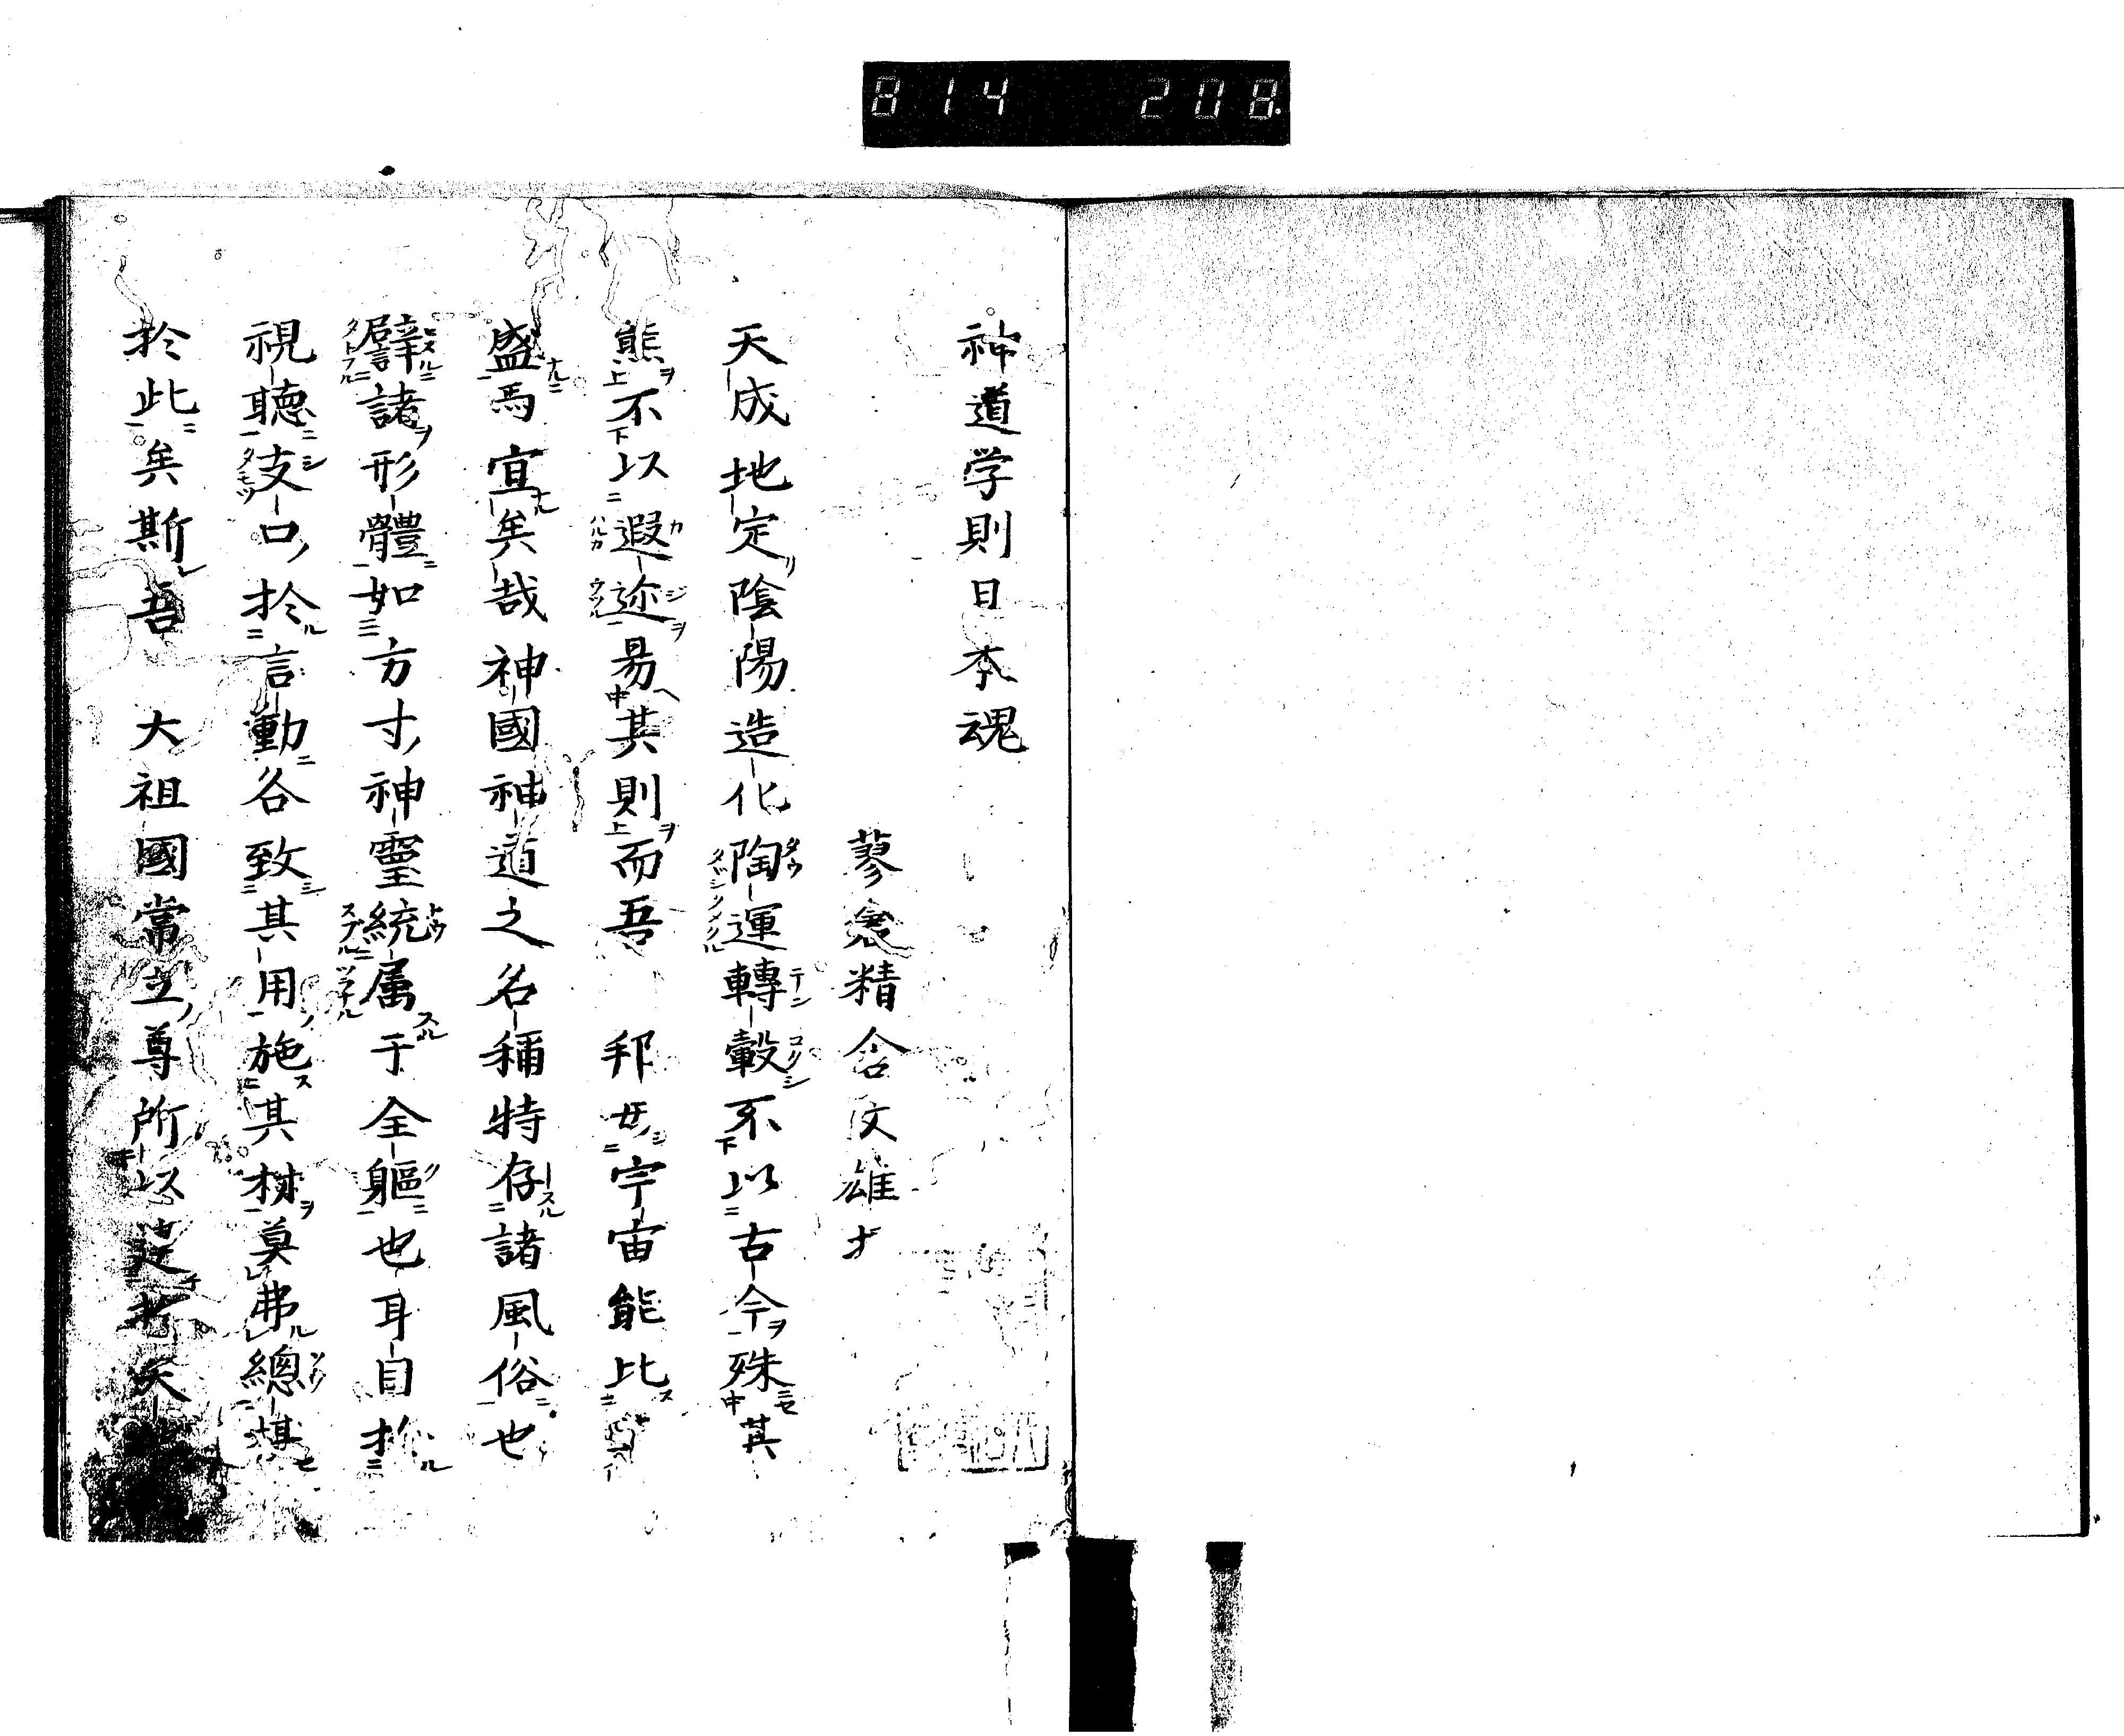 814 208
神道学則日本魂
蓼 精含文雄才
天成地定陰陽造化陶運轉轂不以古今殊其
熊不以遐迩易其則而吾 邦安宇宙能比
盛焉宜矣哉神國神道之名稱特存諸風俗也
譬諸形體如方寸神靈統属于全軀也耳目於
視聴支口於言動各致其用施其材莫弗總
於此矣斯吾 大祖國常立尊所以